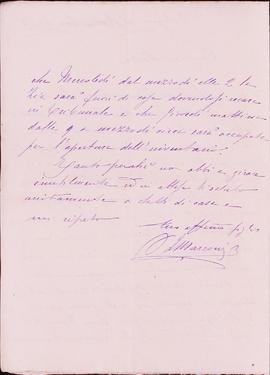 che Mercoledì dal mezzodì alle 2 la
Zia sarà fuori di casa dovendosi recare
in Tribunale e che Giovedì mattina
dalle 9 a mezzodì circa sarà occupata
per l'apertura dell'inventario.
Tanto perchè non abbi a girar
inutilmente ed in attesa ti saluto
unitamente a tutti di casa e
mi ripeto
tuo affmo